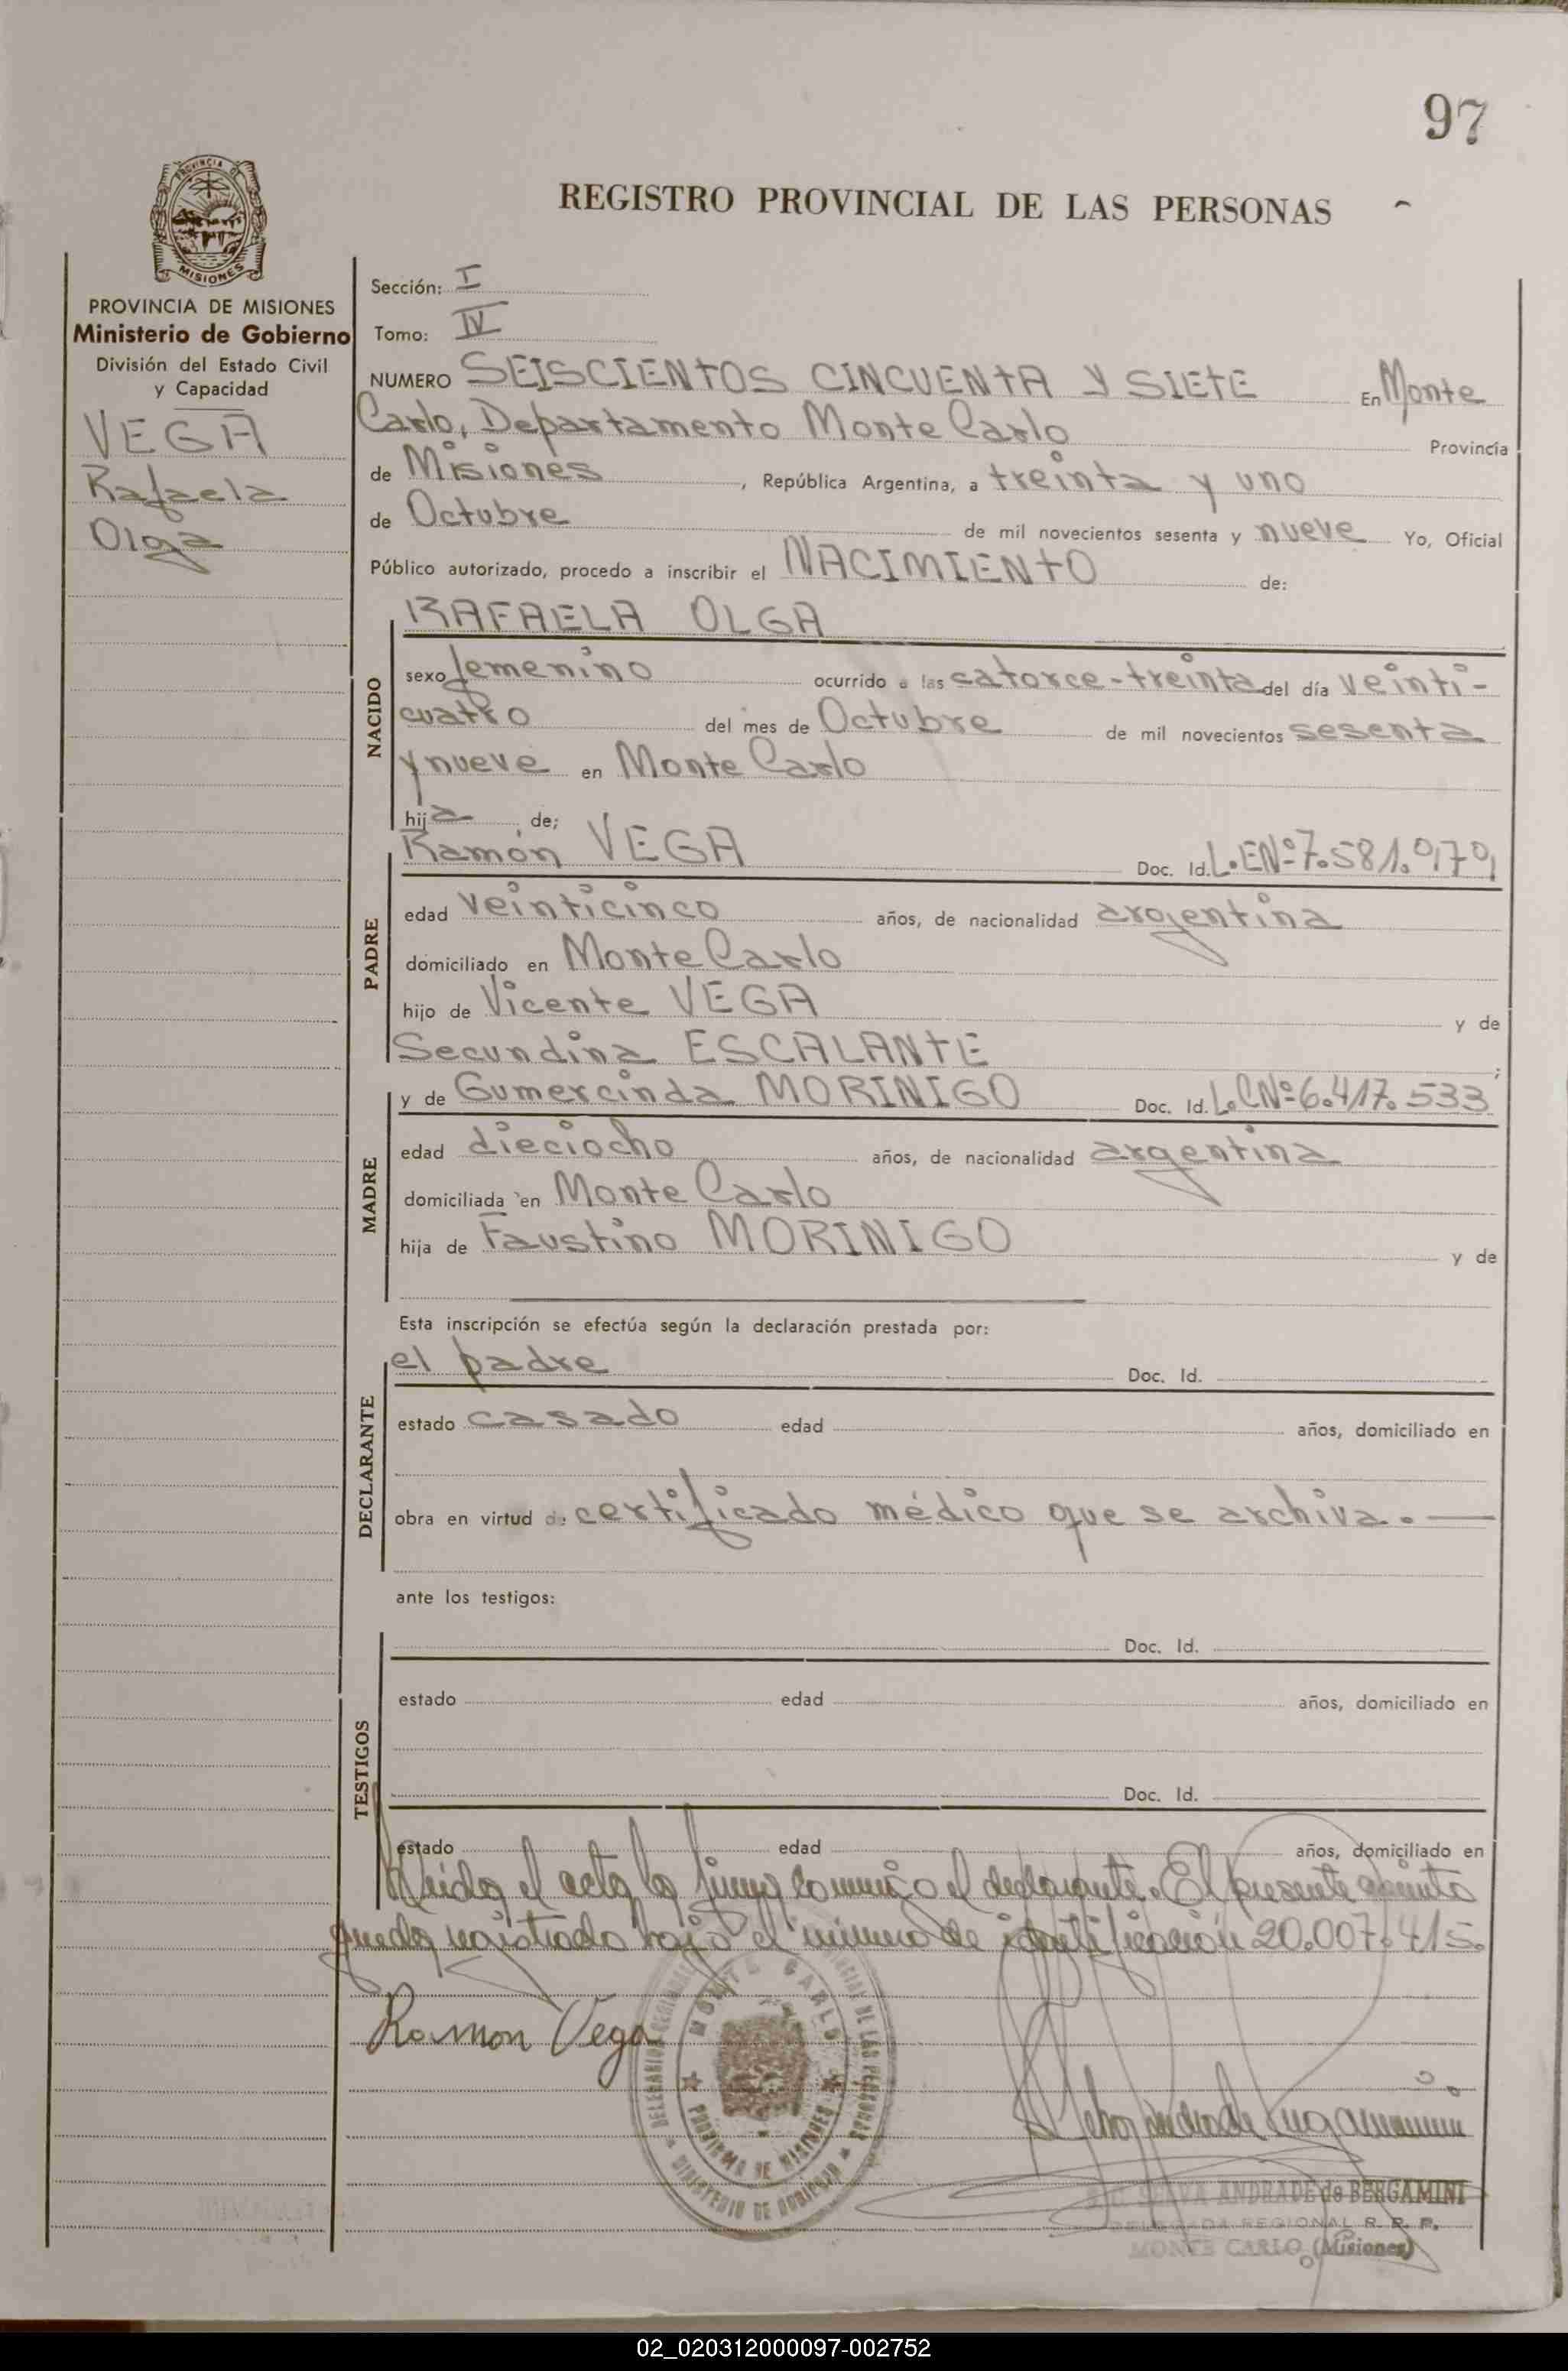 97
REGISTRO PROVINCIAL DE LAS PERSONAS
PROVINCIA DE
MISIONES
PROVINCIA DE MISIONES
Ministerio de Gobierno
División del Estado Civil
y Capacidad
VEGA
Rafaela
Olga
Sección: I
Tomo: IV
NUMERO SEISCIENTOS CINCUENTA Y SIETE En Monte
Carlo, Departamento Monte Carlo Provincia
de Misiones, República Argentina, a treinta y uno
de Octubre de mil novecientos sesenta y nueve Yo, Oficial
Público autorizado, procedo a inscribir el NACIMIENTO de:
RAFAELA OLGA
NACIDO
sexo femenino ocurrido a las catorce-treinta del día veinti-
cuatro del mes de Octubre de mil novecientos sesenta
y nueve en Monte Carlo
hija de;
Ramón VEGA Doc. Id. L.E Nº 7.581.070,
PADRE
edad veinticinco años, de nacionalidad argentina
domiciliado en Monte Carlo
hijo de Vicente VEGA y de
Secundina ESCALANTE;
y de Gumercinda MORINIGO Doc. Id. L.C Nº 6.417.533
MADRE
edad dieciocho años, de nacionalidad argentina
domiciliada en Monte Carlo
hija de Faustino MORINIGO y de
Esta inscripción se efectúa según la declaración prestada por:
el padre Doc. Id.
DECLARANTE
estado casado edad años, domiciliado en
obra en virtud de certificado médico que se archiva.
ante los testigos:
Doc. Id.
TESTIGOS
estado edad años, domiciliado en
Doc. Id.
estado edad años, domiciliado en
Leida el acta la firma conmigo el declarante. El presente asiento
queda registrado bajo el número de identificación 20.007.415.
Ramon Vega
MONTE CARLO
PROVINCIA DE MISIONES
MINISTERIO DE GOBIERNO
ANDRADE de BERGAMINI
DELEGADA REGIONAL R. P. P.
MONTE CARLO (Misiones)
02_020312000097-002752